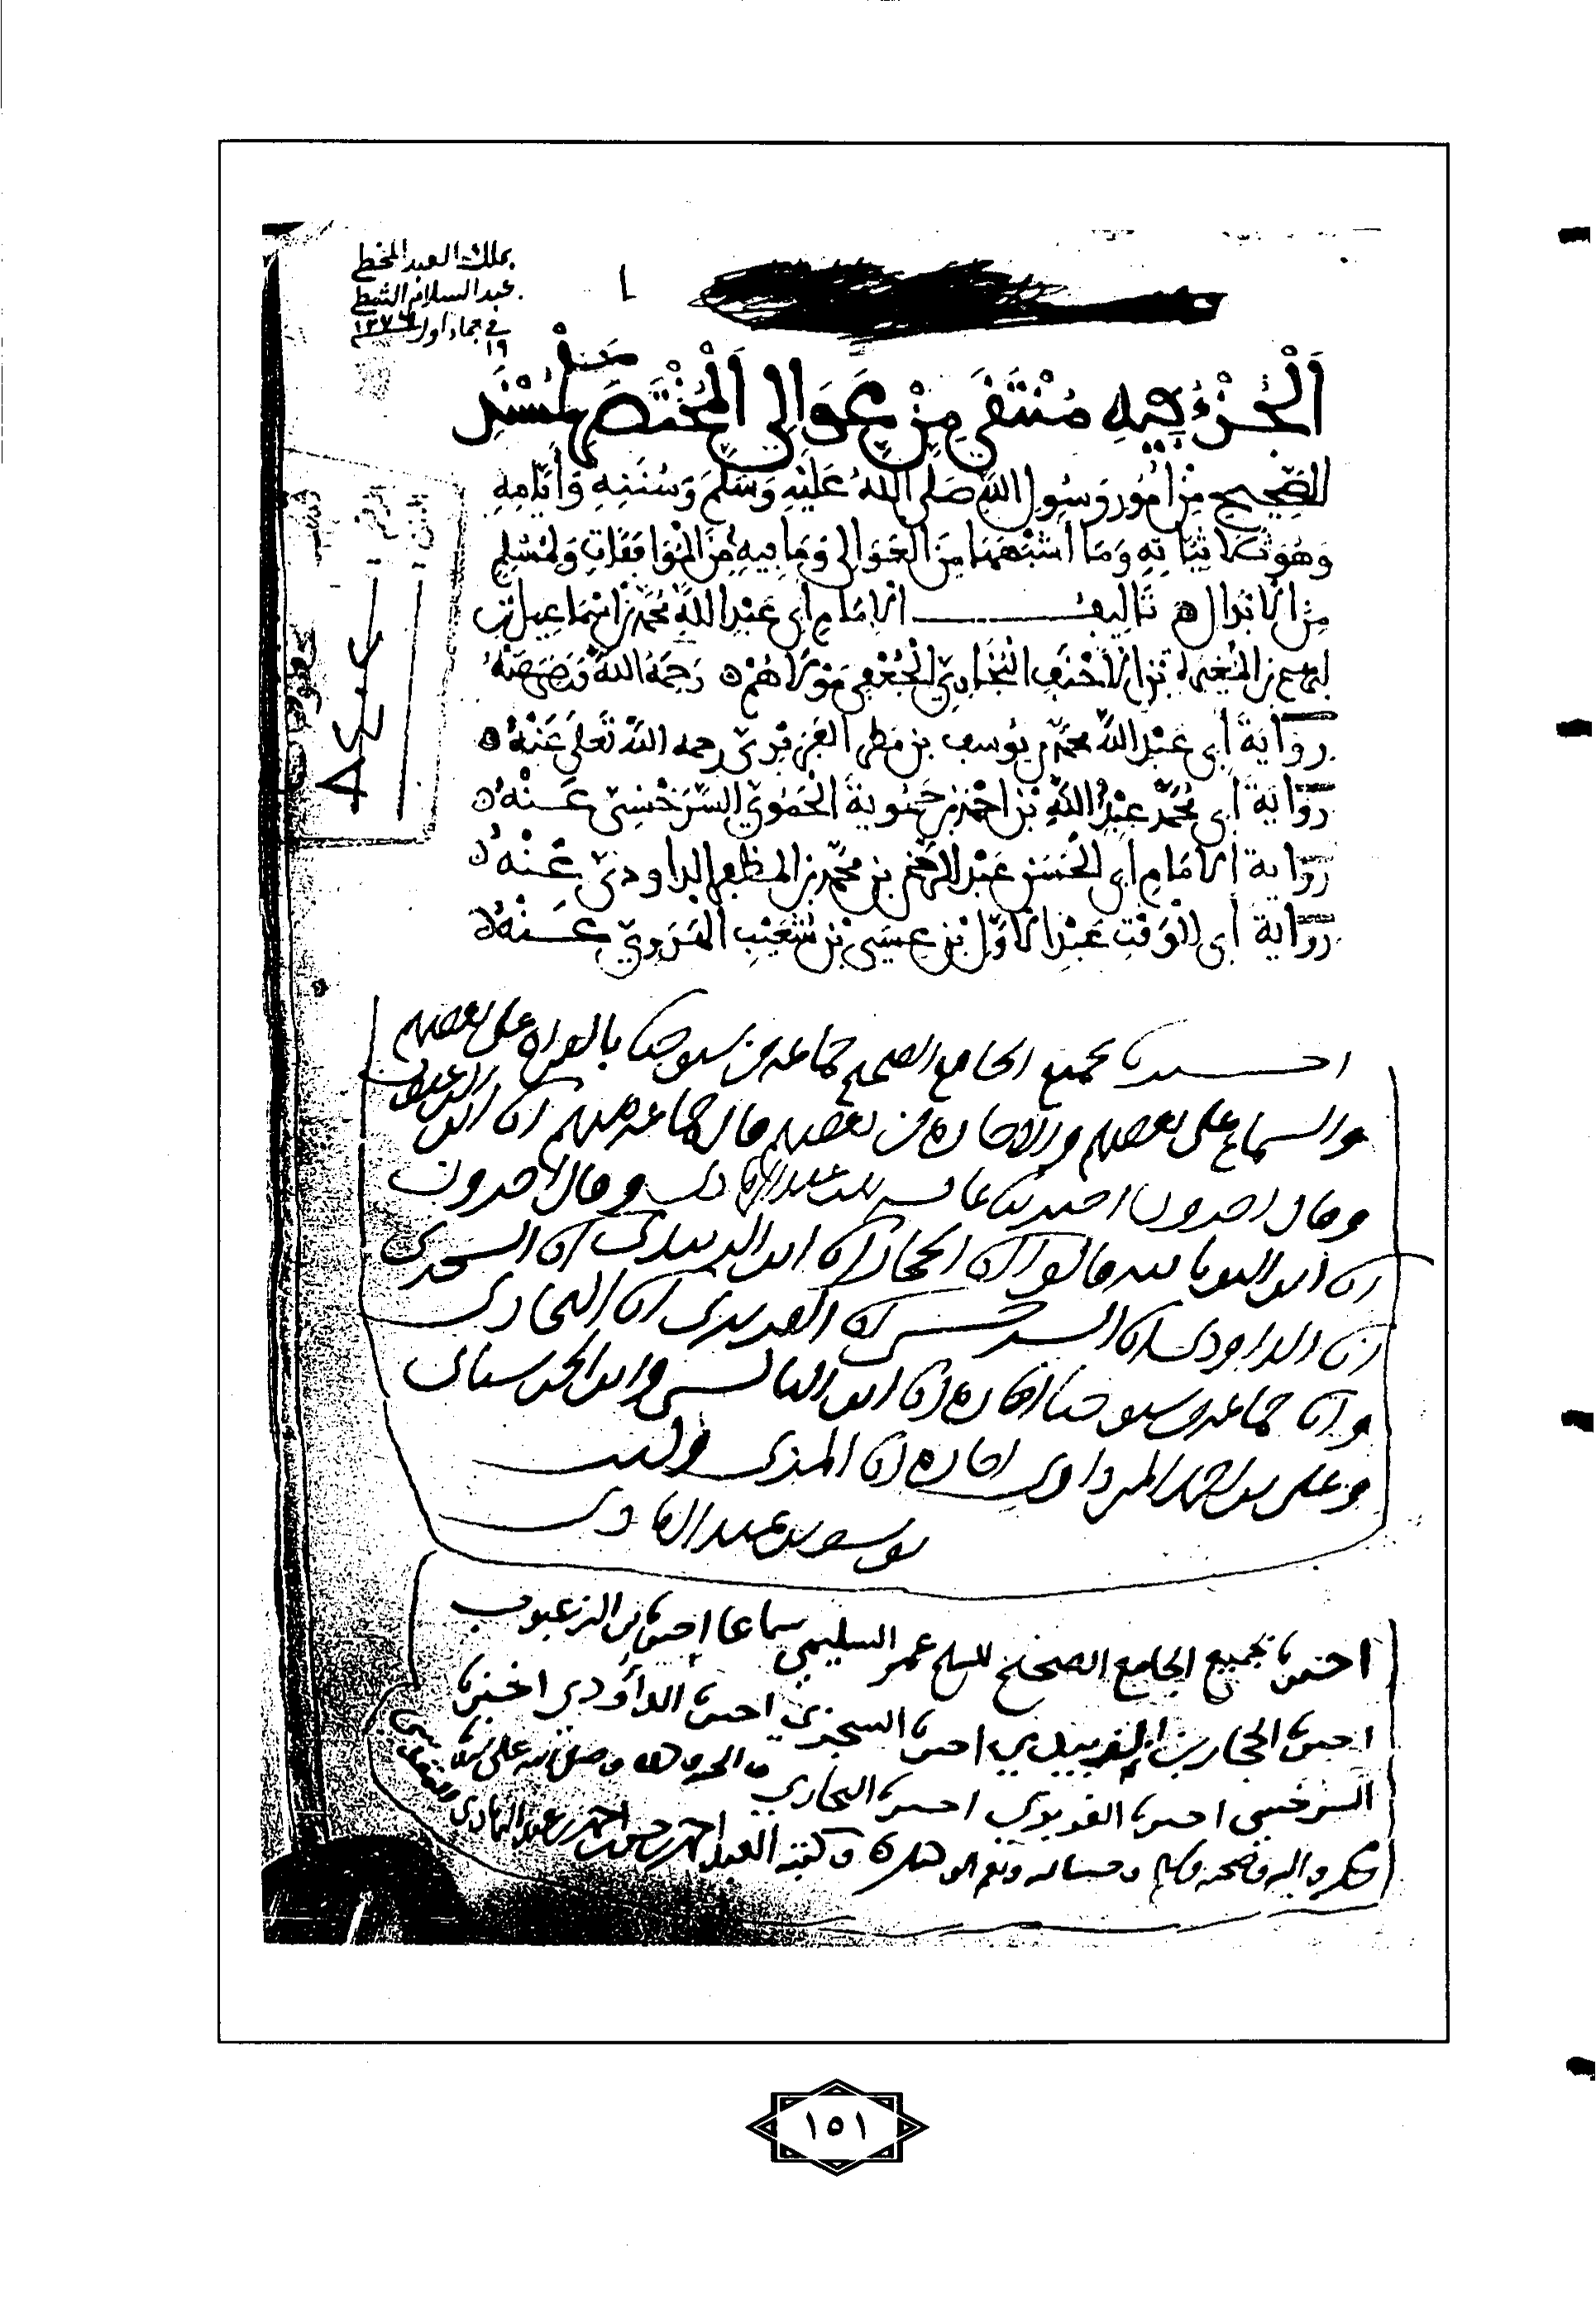 بملك العبد المخطي
عبد السلام الشطي
في جماد اول ١٣٧٦
١٩
الْجُزْءُ فِيهِ مُنْتَقَى مِنْ عَوَالِي الْمُخْتَصَرِ الْمُسْنَدِ
الصَّحِيحِ مِنْ أُمُورِ رَسُولِ اللهِ صَلَّى اللهُ عَلَيْهِ وَسَلَّمَ وَسُنَنِهِ وَأَيَّامِهِ
وَهُوَ ثُلَاثِيَّاتِهِ وَمَا أَشْبَهَهَا مِنَ الْعَوَالِي وَمَا فِيهِ مِنَ الْمُوَافَقَاتِ وَلِمُسْلِمٍ
مِنَ الْأَبْدَالِ ه تَأْلِيفُ الْإِمَامِ أَبِي عَبْدِ اللهِ مُحَمَّدِ بْنِ إِسْمَاعِيلَ بْنِ
إبرهيم بن المُغيرة بْنِ الْأَحْنَفِ الْبُخَارِيِّ الْجُعْفِيِّ مَوْلَاهُمْ ه رَحِمَهُ اللهُ وَرَضِيَ عَنْهُ
رِوَايَةُ أَبِي عَبْدِ اللهِ مُحَمَّدِ بْنِ يُوسُفَ بْنِ مَطَرٍ الْفَرَبْرِيِّ رحمه اللهُ تَعَلَى عَنْهُ ه
رِوَايَةُ أَبِي مُحَمَّدٍ عَبْدِ اللهِ بْنِ أَحْمَدَ بْنِ حَمُّويَةَ الْحَمُّويِّ السَّرَخْسِيِّ عَنْهُ ه
رِوَاية الْإمَامِ أَبِي الْحَسَنِ عَبْدِ الرَّحْمٰنِ بْنِ مُحَمَّدِ بْنِ المظفر الداودِيِّ عَنْهُ ه
رِوَايَةُ أَبِي الْوَقْتِ عَبْدِ الْأَوَّلِ بْنِ عِيسَى بْنِ شُعَيْبٍ الْهَرَوِيِّ عَنْهُ ه
اخبرنا بجميع الجامع الصحيح جماعة من شيوخنا بالقراة على بعضهم
والسماع على بعضهم والاجازة من بعضهم قال جماعة منهم انا ابن الزعبوب
وقال اخرون اخبرتنا عائشة بنت عبد الهادي وقال اخرون
انا ابن البونانية قالوا انا الحجار انا ابن الزبيدي انا السجزي
انا الداودي انا السرخسي انا الفربري انا البخاري
وانا جماعة من شيوخنا اجازة انا ابن البالسي وابن الحرستاني
وعلي بن احمد المرداوي اجازة انا المزي وكتب
يوسف بن عبد الهادي
اخبرنا بجميع الجامع الصحيح الشيخ عمر السليمي سماعا اخبرنا ابن الزعبوب
اخبرنا الحجار بن الزبيدي اخبرنا السجزي اخبرنا الداودي اخبرنا
السرخسي اخبرنا الفربري اخبرنا البخاري والحمد لله وصلى الله على سيدنا
محمد واله وصحبه وسلم وحسبنا الله ونعم الوكيل وكتبه العبد احمد بن حسن بن احمد بن عبد الهادي
١٥١